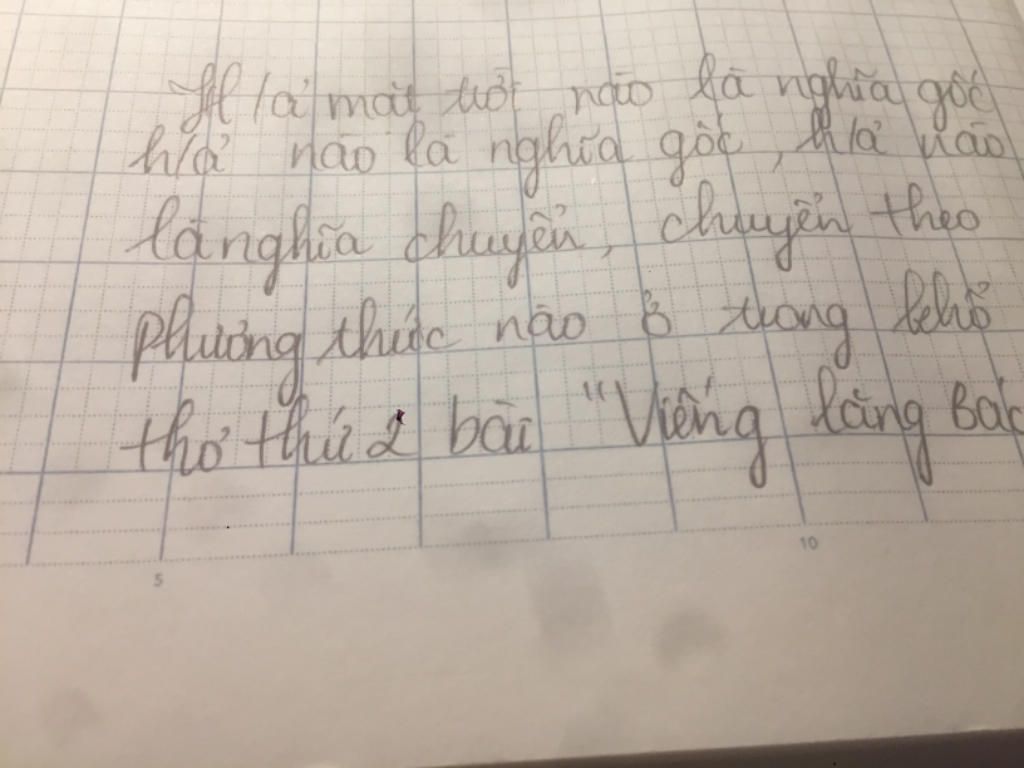 H/ả mặt trời nào là nghĩa gốc
h/ả nào là nghĩa gốc, h/ả nào
là nghĩa chuyển, chuyển theo
phương thức nào ở trong khổ
thơ thứ 2 bài "Viếng lăng Bác
5
10